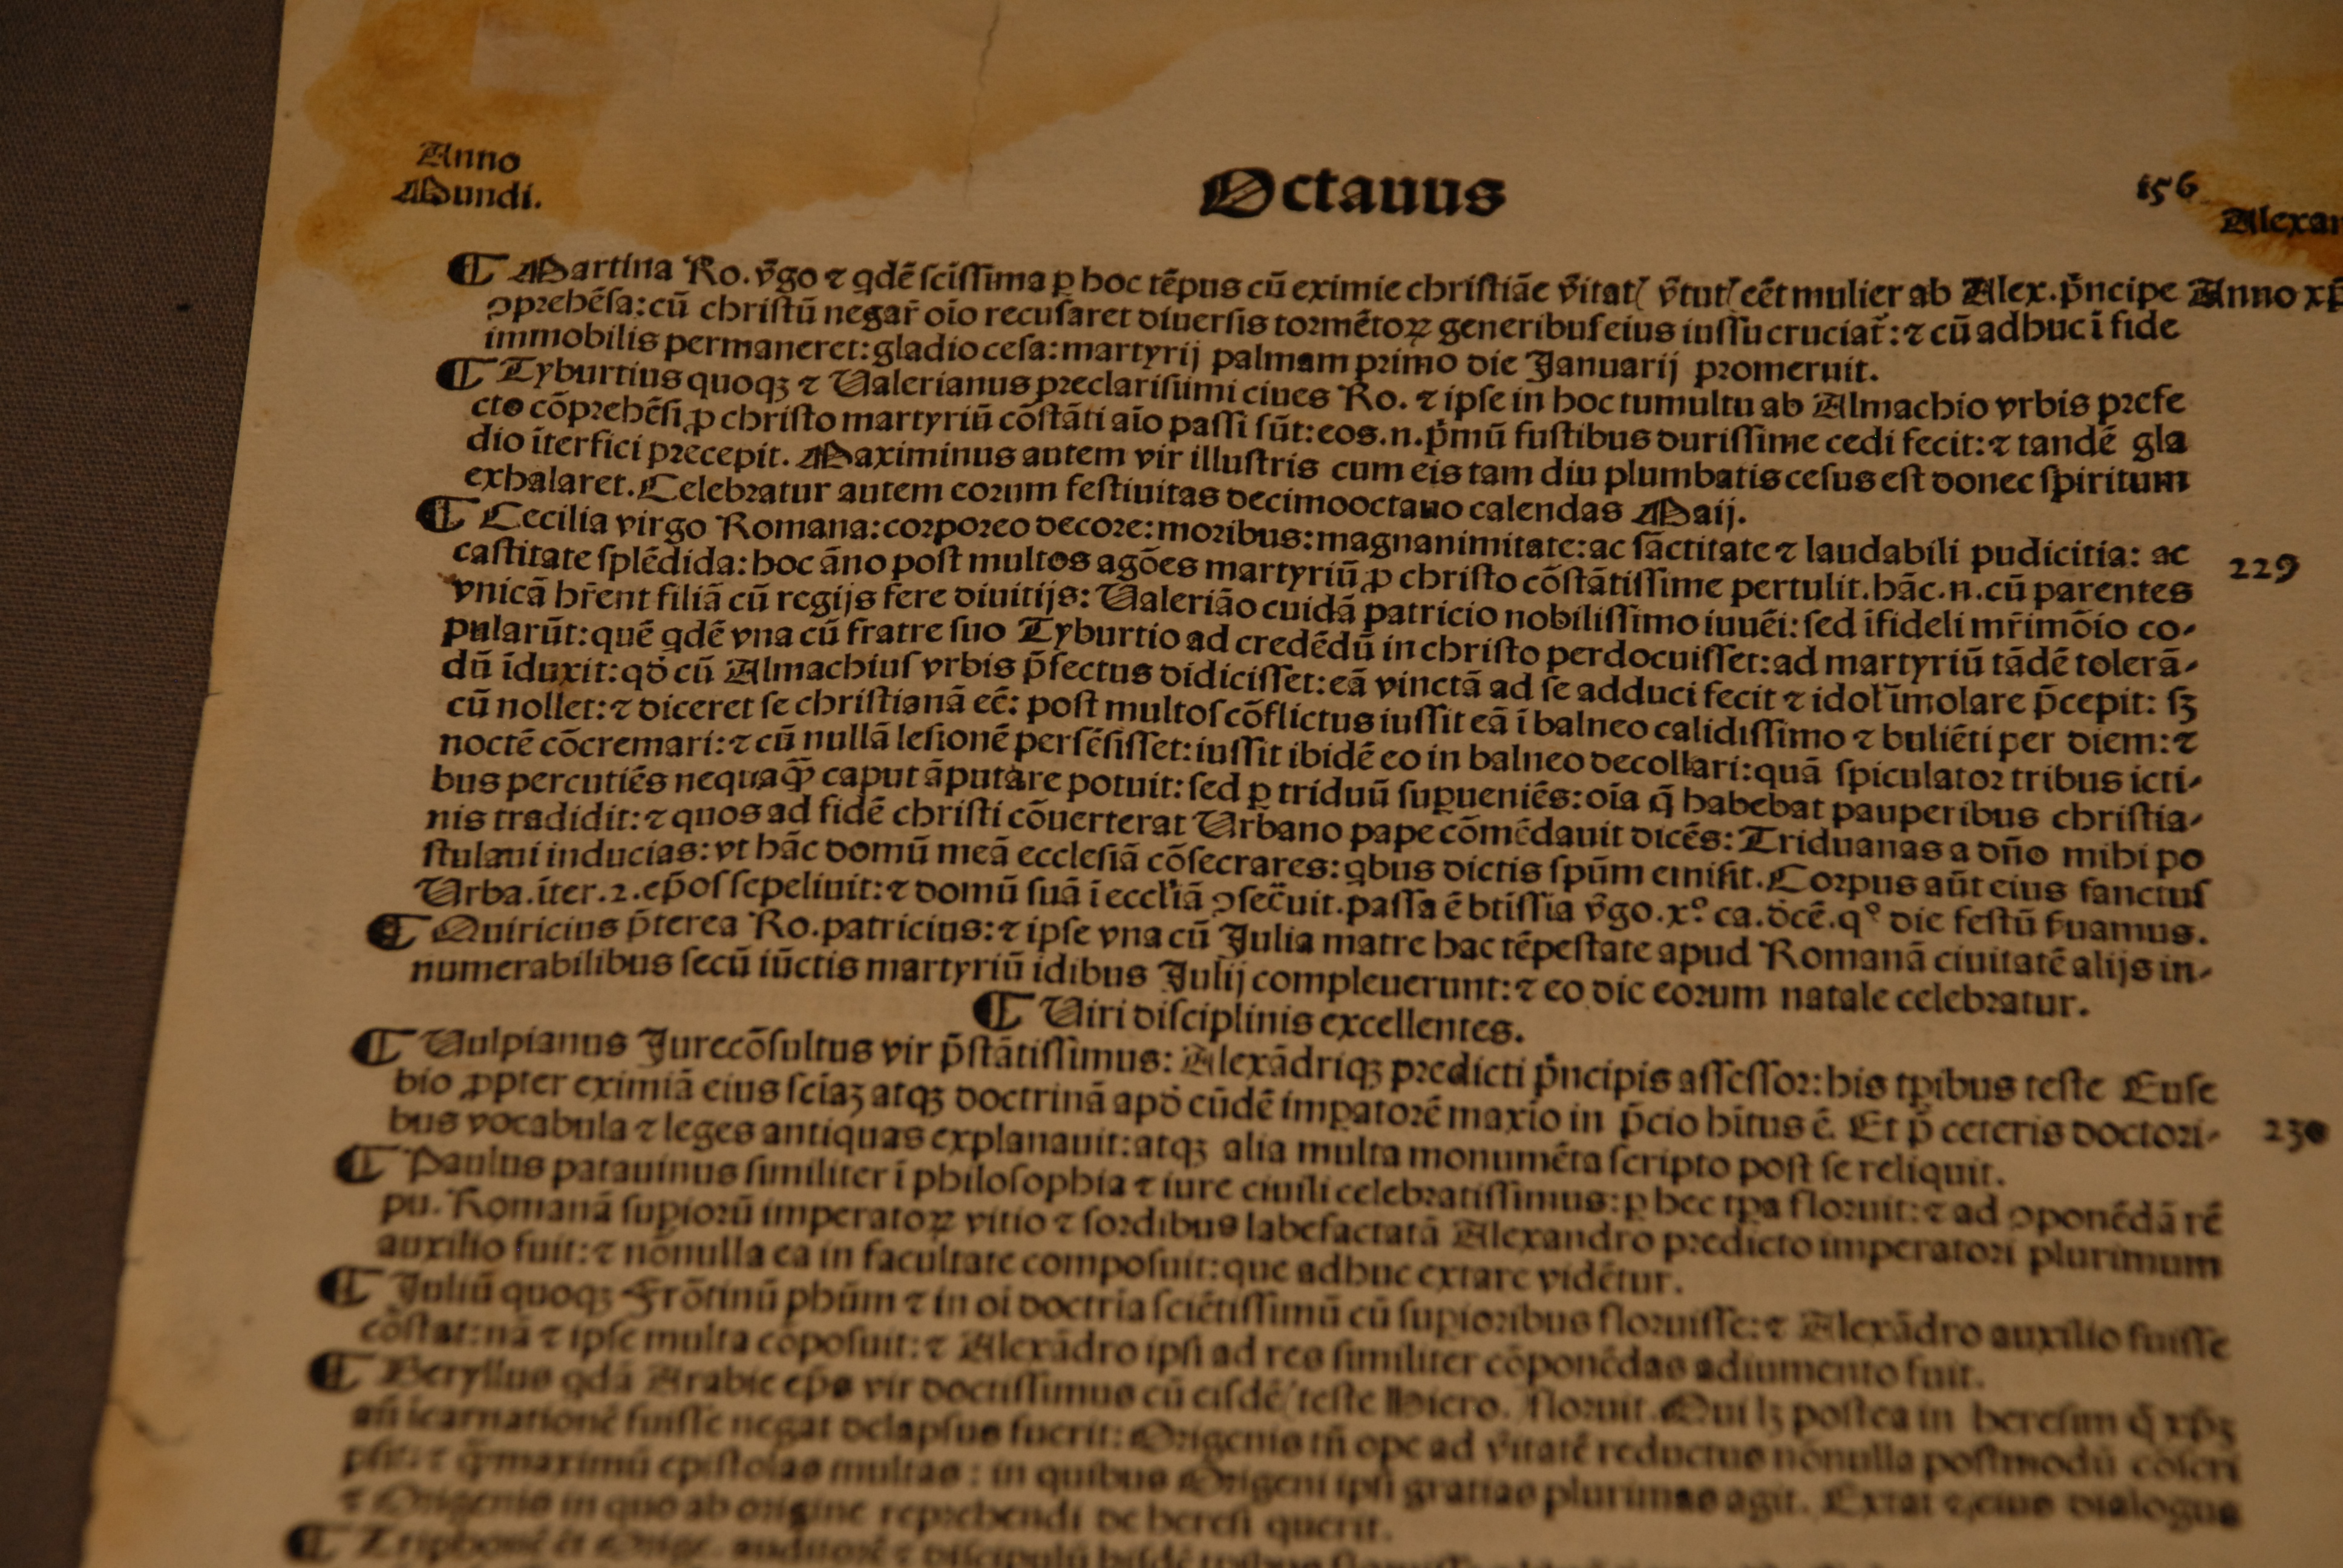 Anno
Mundi.
Octauus
156
Alexan
¶ Martina Ro. v̄go ⁊ qdē sc̄issima ꝑ hoc tēpus cū eximie christiāe v̄itatꝭ v̄tutꝭ eēt mulier ab Alex. p̄ncipe
Anno xp̄
ↄprehēsa: cū christū negar̄ oīo recusaret diuersis tormētoꝝ generibus eius iussu cruciat̄: ⁊ cū adhuc ī fide
immobilis permaneret: gladio cesa: martyrij palmam primo die Januarij promeruit.
¶ Tyburtius quoqꝫ ⁊ Ualerianus preclarissimi ciues Ro. ⁊ ipse in hoc tumultu ab Almachio vrbis prefe
cto cōprehēsi ꝓ christo martyriū cōstāti aīo passi sūt: eos .n. p̄mū fustibus durissime cedi fecit: ⁊ tandē gla
dio īterfici precepit. Maximinus autem vir illustris cum eis tam diu plumbatis cesus est donec spiritum
exhalaret. Celebratur autem eorum festiuitas decimooctauo calendas Maij.
¶ Cecilia virgo Romana: corporeo decore: moribus: magnanimitate: ac sāctitate ⁊ laudabili pudicitia: ac
229
castitate splēdida: hoc āno post multos agōes martyriū ꝓ christo cōstātissime pertulit. hāc .n. cū parentes
vnicā hr̄ent filiā cū regijs fere diuitijs: Ualeriāo cuidā patricio nobilissimo iuuēi: sed īfideli mr̄imōio co-
pularūt: quē qdē vna cū fratre suo Tyburtio ad credēdū in christo perdocuisset: ad martyriū tādē tolerā-
dū īduxit: qđ cū Almachius vrbis p̄fectus didicisset: eā vinctā ad se adduci fecit ⁊ idol̄ īmolare p̄cepit: sꝫ
cū nollet: ⁊ diceret se christianā eē: post multos cōflictus iussit eā ī balneo calidissimo ⁊ buliēti per diem: ⁊
noctē cōcremari: ⁊ cū nullā lesionē persēsisset: iussit ibidē eo in balneo decollari: quā spiculator tribus icti-
bus percutiēs nequaq̄ꝫ caput āputare potuit: sed ꝑ triduū suꝑueniēs: oīa q̄ habebat pauperibus christia-
nis tradidit: ⁊ quos ad fidē christi cōuerterat Urbano pape cōmēdauit dicēs: Triduanas a dn̄o mihi po
stulaui inducias: vt hāc domū meā ecclesiā cōsecrares: qbus dictis spūm emisit. Corpus aūt eius sanctus
Urba. īter .2. ep̄os sepeliuit: ⁊ domū suā ī eccl̄iā ↄsec̄uit. passa ē btīssīa v̄go .x° ca. đcē. q° die festū s̄uamus.
¶ Quiricius p̄terea Ro. patricius: ⁊ ipse vna cū Julia matre hac tēpestate apud Romanā ciuitatē alijs in-
numerabilibus secū iūctis martyriū idibus Julij compleuerunt: ⁊ eo die eorum natale celebratur.
¶ Uiri disciplinis excellentes.
¶ Uulpianus Jurecōsultus vir p̄stātissimus: Alexādriqꝫ predicti p̄ncipis assessor: his tꝑibus teste Euse
bio ꝓpter eximiā eius sciāꝫ atqꝫ doctrinā apđ cūdē imꝑatorē maxīo in p̄cio hītus ē. Et p̄ ceteris doctori-
230
bus vocabula ⁊ leges antiquas explanauit: atqꝫ alia multa monumēta scripto post se reliquit.
¶ Paulus patauinus similiter ī philosophia ⁊ iure ciuili celebratissimus: ꝑ hec tꝑa floruit: ⁊ ad ↄponēdā rē
pu. Romanā suꝑiorū imperatoꝝ vitio ⁊ sordibus labefactatā Alexandro predicto imperatori plurimum
auxilio fuit: ⁊ nōnulla ea in facultate composuit: que adhuc extare vidētur.
¶ Juliū quoqꝫ Frōtinū ph̄um ⁊ in oī doctrīa sciētissimū cū suꝑioribus floruisse: ⁊ Alexādro auxilio fuisse
cōstat: nā ⁊ ipse multa cōposuit: ⁊ Alexādro ipsi ad res similiter cōponēdas adiumento fuit.
¶ Beryllus qdā Arabie ep̄s vir doctissimus cū eisdē/ teste Hiero. floruit. Qui lꝫ postea in heresim q̄ xp̄ꝫ
an̄ īcarnationē fuisse negat delapsus fuerit: Origenis tn̄ ope ad v̄itatē reductus nōnulla postmodū cōscri
psit: ⁊ q̄ꝫmaximū epistolas multas: in quibus Origeni ipsi gratias plurimas agit. Extat ⁊ eius dialogus
⁊ Origenis in quo ab origine reprehendi de heresi querit.
¶ Triphonē ēt Orige. auditorē ⁊ discipulū hisdē